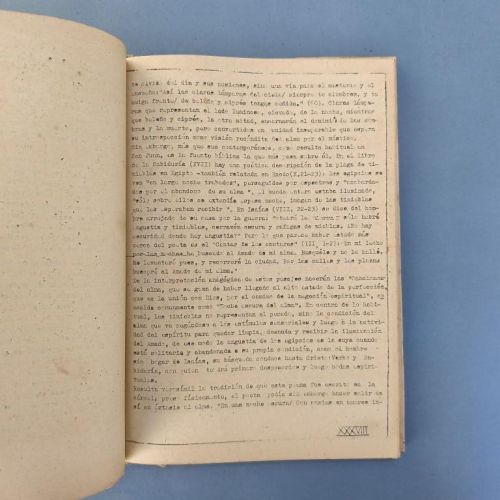 del día y sus pasiones, sino una vía para el misterio y el
ensueño: "Así las claras lámparas del cielo/ siempre te alumbren, y tu
amiga frente/ de beleño y ciprés tengas ceñida." (60). Claras lámpa-
ras que representan el lado luminoso, elevado, de la noche, mientras
que beleño y ciprés, la otra mitad, encarnarán el dominio de las som-
bras y la muerte, pero convertidos en unidad inseparable que espera
su introspección como visión recóndita del alma por el místico.
Sin embargo, más que sus contemporáneos, como resulta habitual en
San Juan, es la fuente bíblica la que más pesa sobre él. En el libro
de la Sabiduría (XVII) hay una poética descripción de la plaga de ti-
nieblas en Egipto -también relatada en Exodo(X,21-23): los egipcios se
ven "en larga noche trabados", perseguidos por espectros y
por el abandono de su alma ". El mundo entero estaba iluminado,
"sólo sobre ellos se extendía pesada noche, imagen de las tinieblas
que les esperaban recibir ". En Isaías (VIII, 22-23) se dice del hombre
arrojado de su casa por la guerra: sólo habrá
angustia y tinieblas, cerrazón oscura y ¿No hay
oscuridad donde hay angustia?" Pero lo que parece haber estado más
cerca del poeta es el "Cantar de los cantares" (III, 1-2): En mi lecho
por las noches he buscado al Amado de mi alma. Busquéle y no le hallé.
Me levantaré pues, y recorreré la ciudad. Por las calles y las plazas
buscaré al Amado de mi alma."
De la interpretación anagógica de estos pasajes nacerán las "Canciones
del alma, que se goza de haber llegado al alto estado de la perfección,
que es la unión con Dios, por el camino de la negación espiritual",
conocida comunmente como "Noche oscura del alma". En contra de lo habi-
tual, las tinieblas no representan al pecado, sino la condición del
alma que va cegándose a los estímulos sensoriales y luego a la activi-
dad del espíritu para quedar limpia, desnuda y recibir la iluminación
del Amado, de ese modo la angustia de los egipcios es la suya cuando
está solitaria y abandonada a su propia condición, como el hombre
sin hogar de Isaías, su búsqueda conduce hasta Cristo: Verbo y Sa-
biduría, con quien tendrá primer desposorios y luego bodas espiri-
tuales.
Resulta verosímil la tradición de que este poema fue escrito en la
cárcel; preso físicamente, el poeta podía sin embargo hacer salir de
sí en éxtasis al alma. "En una noche oscura/ Con ansias en amores in-
XXXVIII